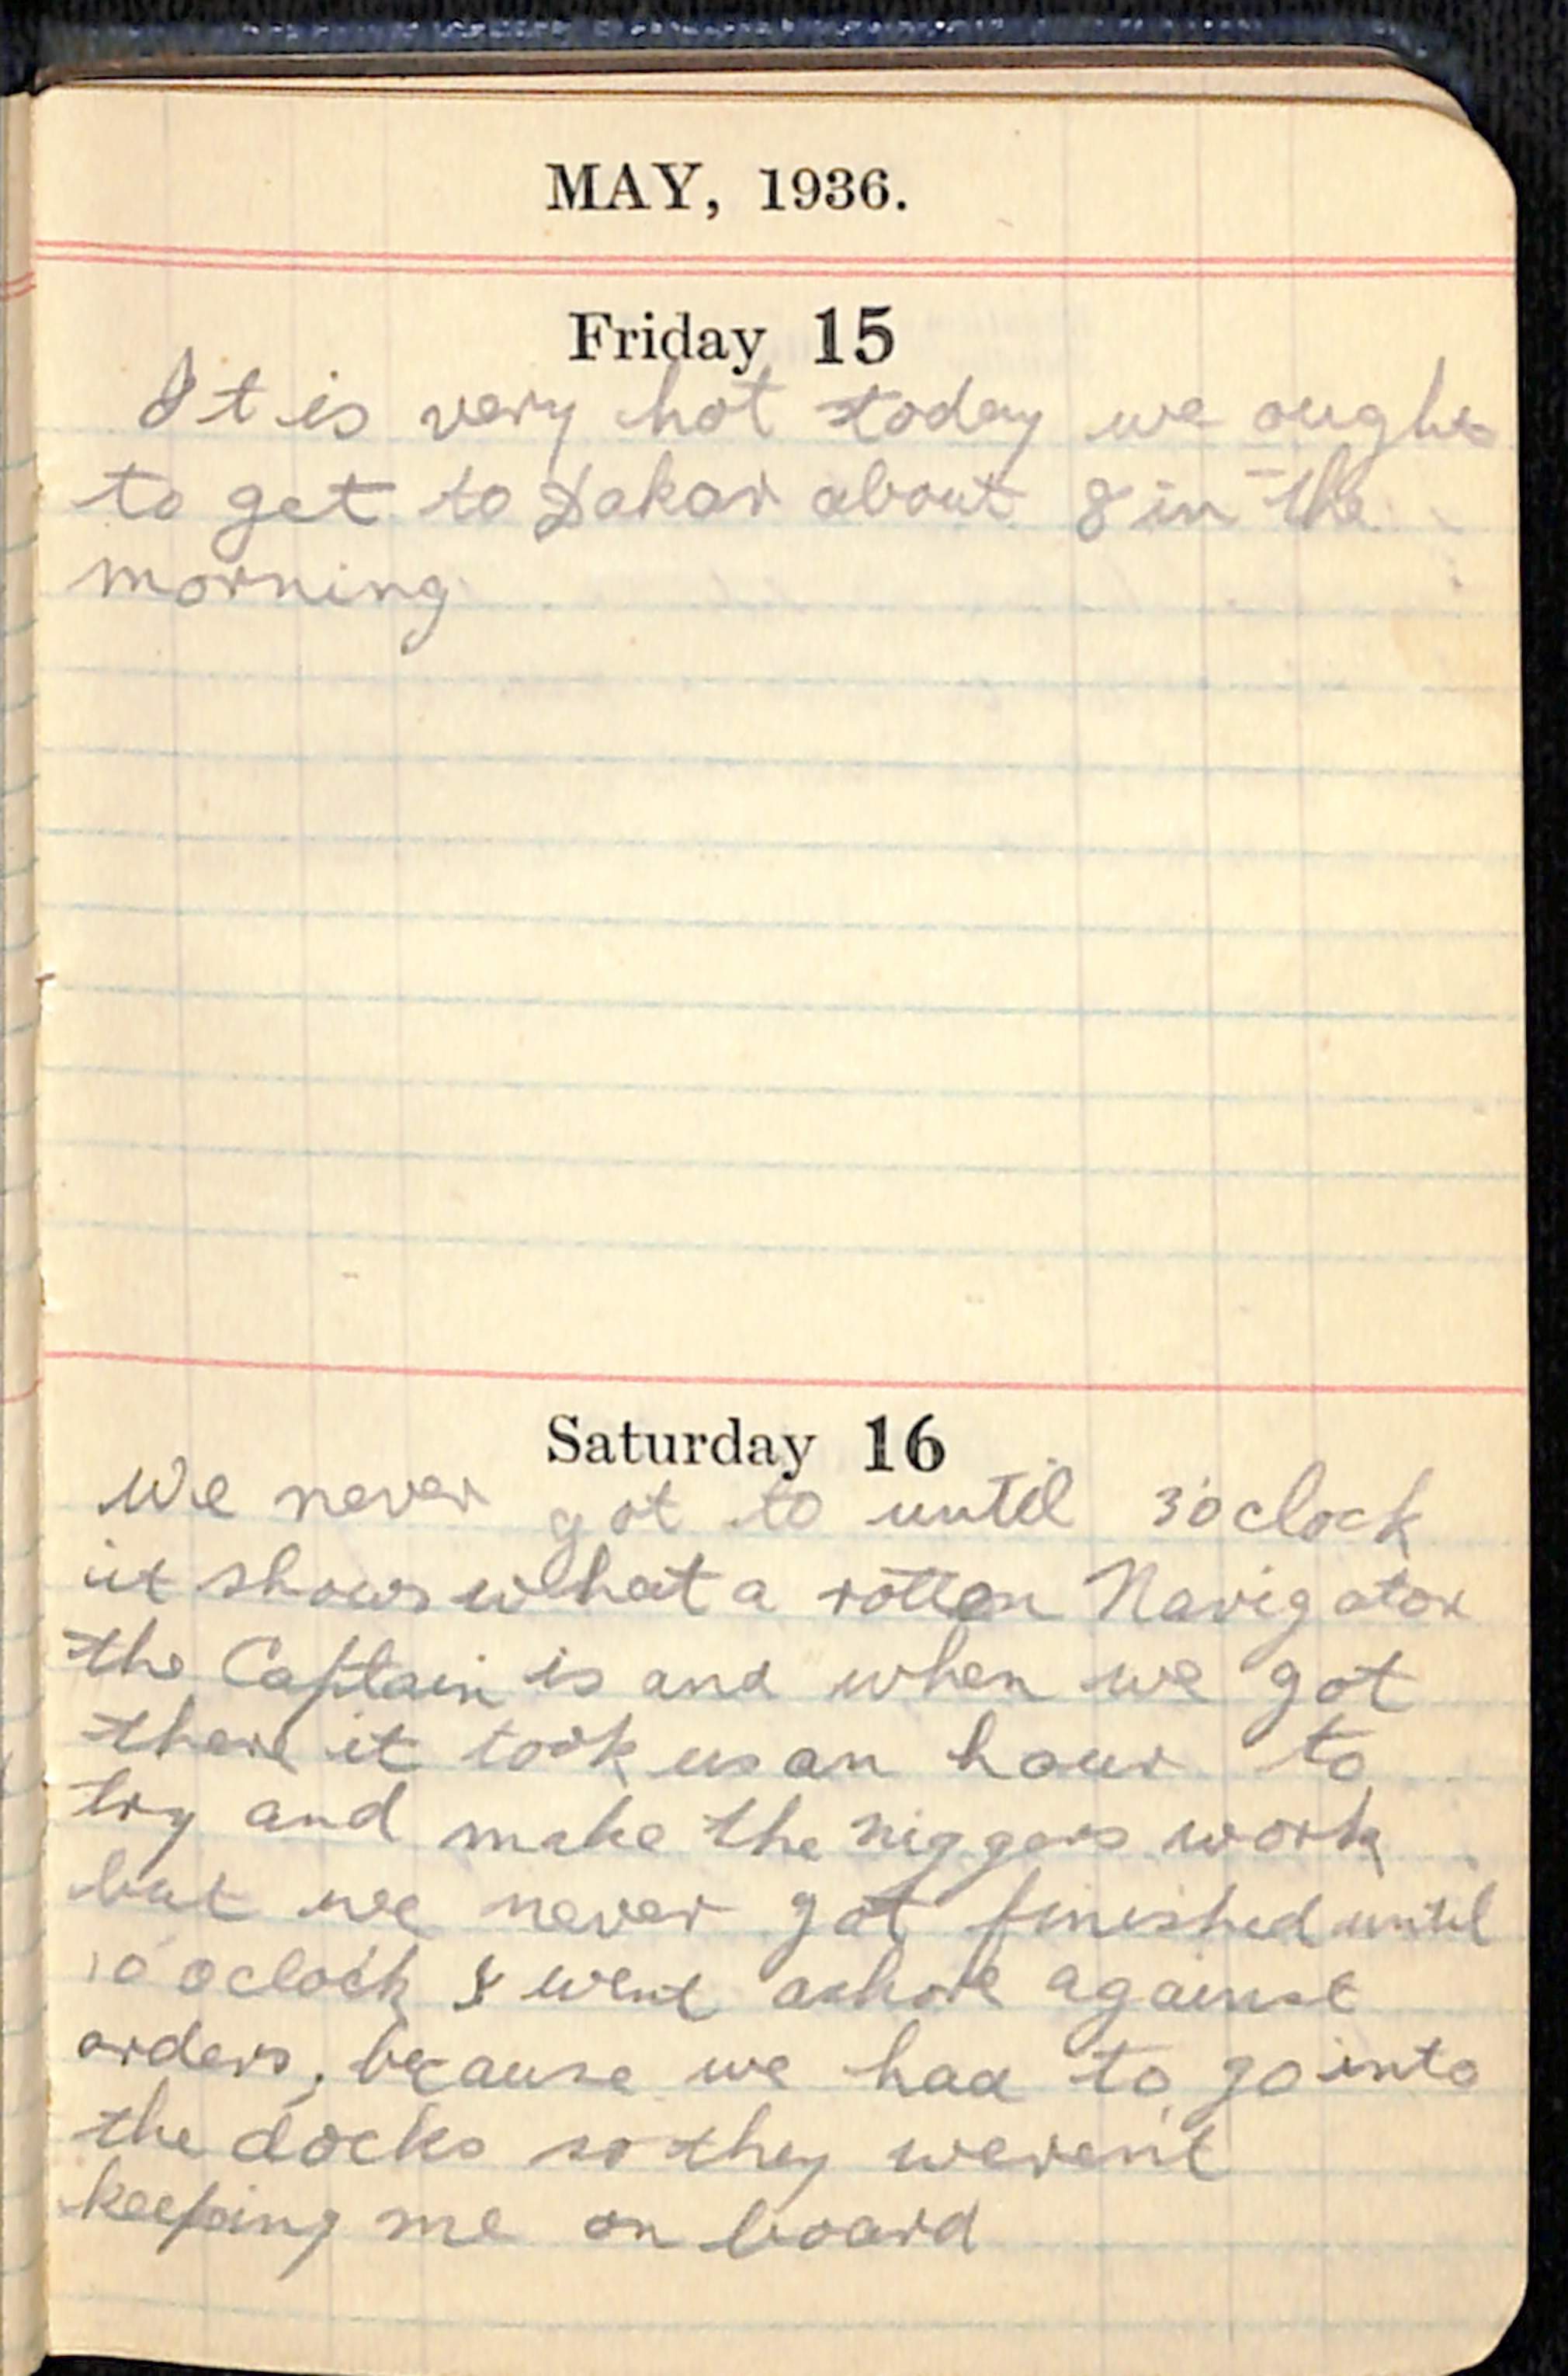 MAY, 1936.
Friday 15
It is very hot today we ought
to get to Dakar about 8 in the
morning
Saturday 16
We never got to until 3 oclock
it shows what a rotten Navigator
the Captain is and when we got
there it took us an hour to
try and make the niggers work
but we never got finished until
10 oclock & went ashore against
orders, because we had to go into
the docks so they weren't
keeping me on board